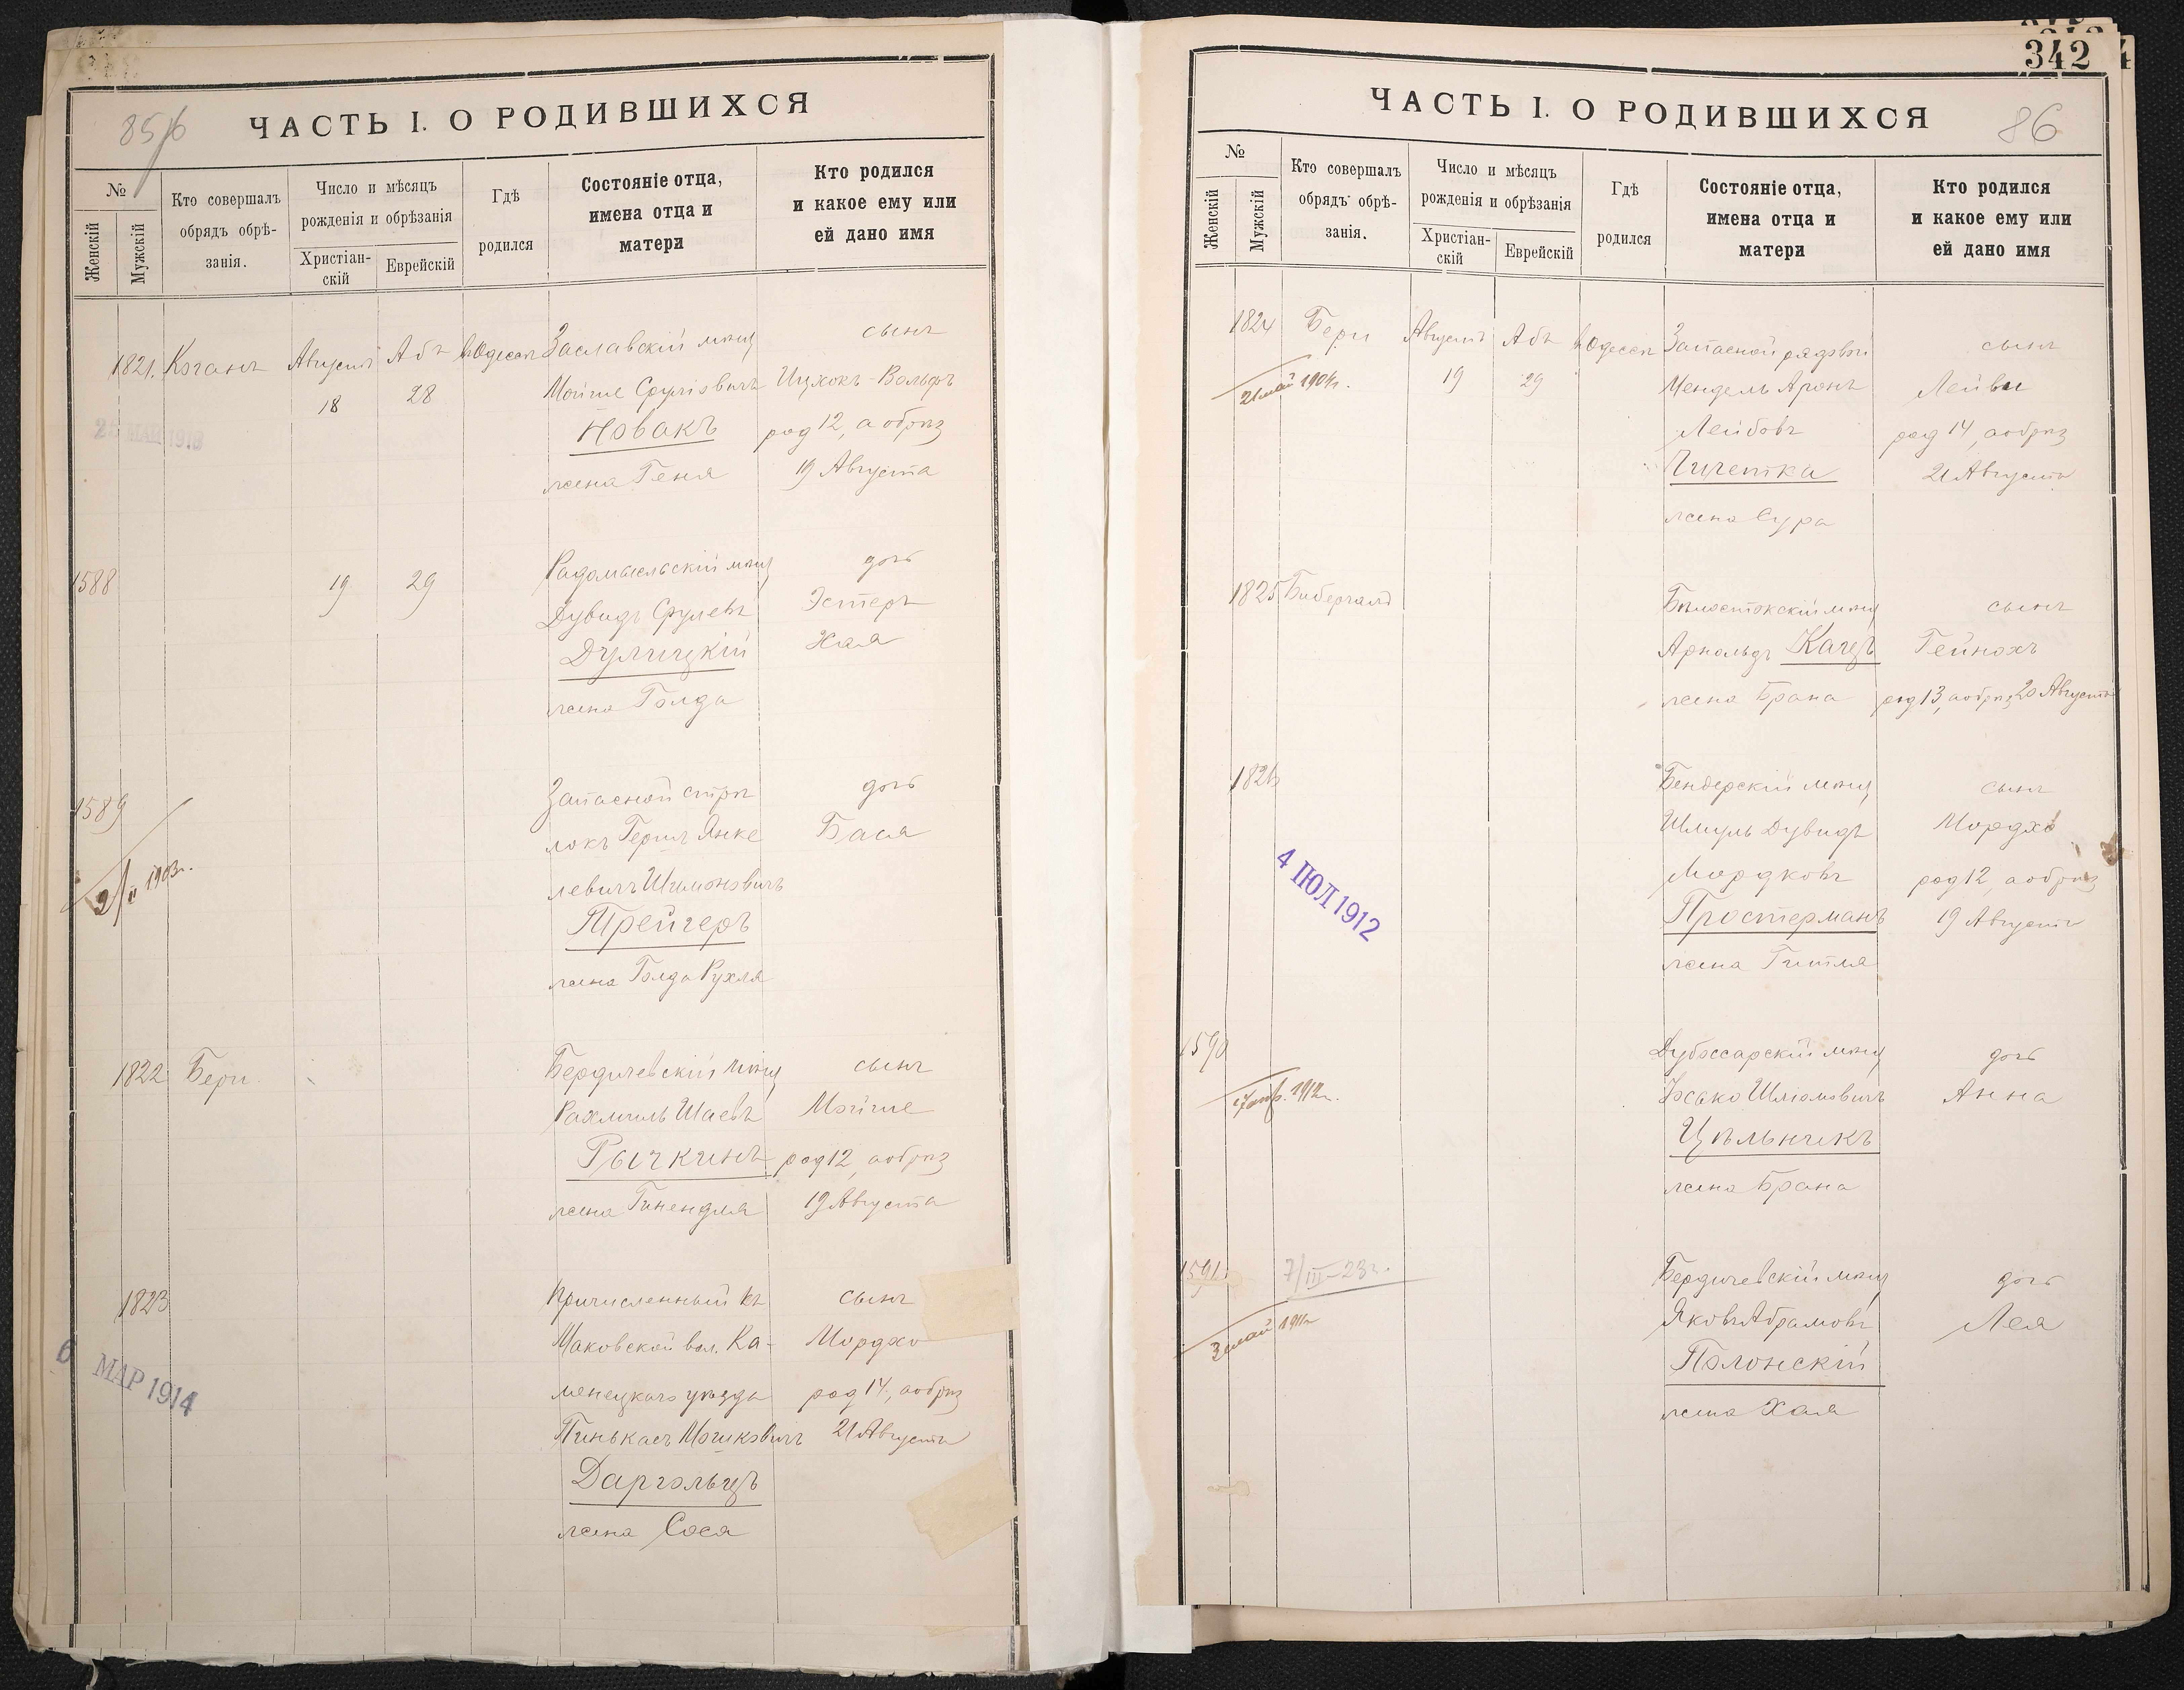 85/6
ЧАСТЬ I. О РОДИВШИХСЯ
№
Женскій
Мужскій
Кто совершалъ
обрядъ обрѣ-
занія.
Число и мѣсяцъ
рожденія и обрѣзанія
Христіан-
скій
Еврейскій
Гдѣ
родился
Состояніе отца,
имена отца и
матери
Кто родился
и какое ему или
ей дано имя
1821. Коганъ Августъ 18 Абъ 28 въ Одессѣ
Заславскій мѣщ
Мойше Сруліовичъ
Новакъ
жена Геня
сынъ
Ицхокъ-Вольфъ
род 12, а обрѣз
19 Августа
МАЙ 1913
1588
19 29
Радомысльскій мѣщ
Дувидъ Срулевъ
Дулицкій
жена Голда
дочь
Эстеръ
Хая
1589
2/II 1903г.
Запасной стрѣ
локъ Герш Янке
левичъ Шимоновичъ
Трейгеръ
жена Голда Рухля
дочь
Бася
1822 Бери
Бердичевскій мѣщ
Рахмиль Шаевъ
Рычкинъ
жена Гинендля
сынъ
Мойше
род 12, а обрѣз
19 Августа
1823
6 МАР 1914
Причисленный къ
Маковской вол. Ка-
менецкаго уѣзда
Пинькасъ Мошковичъ
Даргольцъ
жена Сося
сынъ
Мордхо
род 14, а обрѣз
21 Августа
342
ЧАСТЬ I. О РОДИВШИХСЯ
86
№
Женскій
Мужскій
Кто совершалъ
обрядъ обрѣ-
занія.
Число и мѣсяцъ
рожденія и обрѣзанія
Христіан-
скій
Еврейскій
Гдѣ
родился
Состояніе отца,
имена отца и
матери
Кто родился
и какое ему или
ей дано имя
1824 Бери Августъ 19 Абъ 29 въ Одессѣ
21 май 1904г.
Запасной рядовой
Мендель Аронъ
Лейбовъ
Чичетка
жена Сура
сынъ
Лейви
род 14, а обрѣз
21 Августа
1825 Бибергалъ
Бѣлостокскій мѣщ
Арнольдъ Кацъ
жена Брана
сынъ
Гейнохъ
род 13, а обрѣз 20 Августа
1826
4 ІЮЛ 1912
Бендерскій мѣщ
Шмуль Дувидъ
Мордковъ
Простерманъ
жена Гитля
сынъ
Мордхо
род 12, а обрѣз
19 Августа
1590
1912г.
Дубоссарскій мѣщ
Іосько Шліомовичъ
Цѣльникъ
жена Брана
дочь
Анна
1591.
7/III-23г.
3 май 1911г
Бердичевскій мѣщ
Яковъ Абрамовъ
Полонскій
жена Хая
дочь
Лея